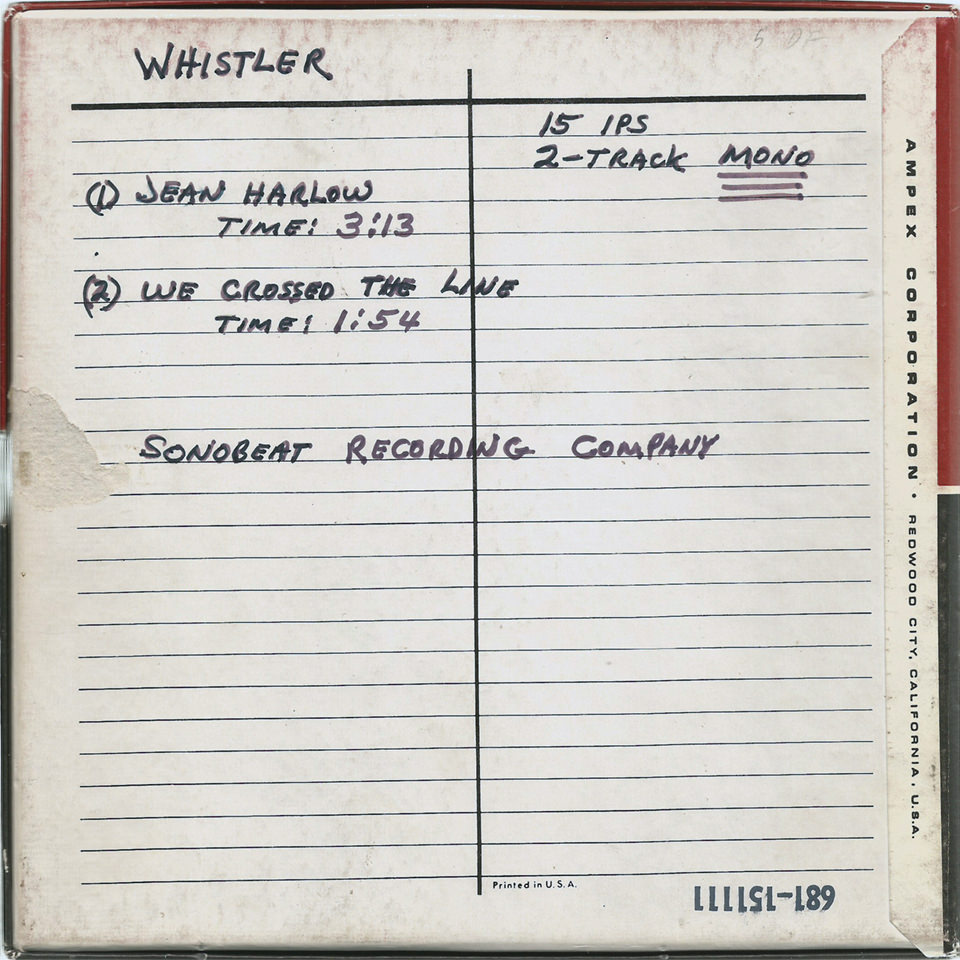 WHISTLER
15 IPS
2-TRACK MONO
(1) JEAN HARLOW
TIME: 3:13
(2) WE CROSSED THE LINE
TIME: 1:54
SONOBEAT RECORDING COMPANY
Printed in U.S.A.
681-151111
AMPEX CORPORATION • REDWOOD CITY, CALIFORNIA, U.S.A.